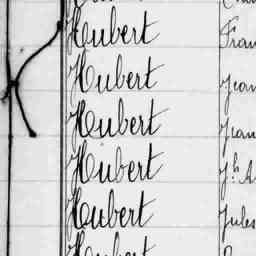 Hubert Fran
Hubert Jean
Hubert Jean
Hubert Jh A
Hubert Jules
Hubert